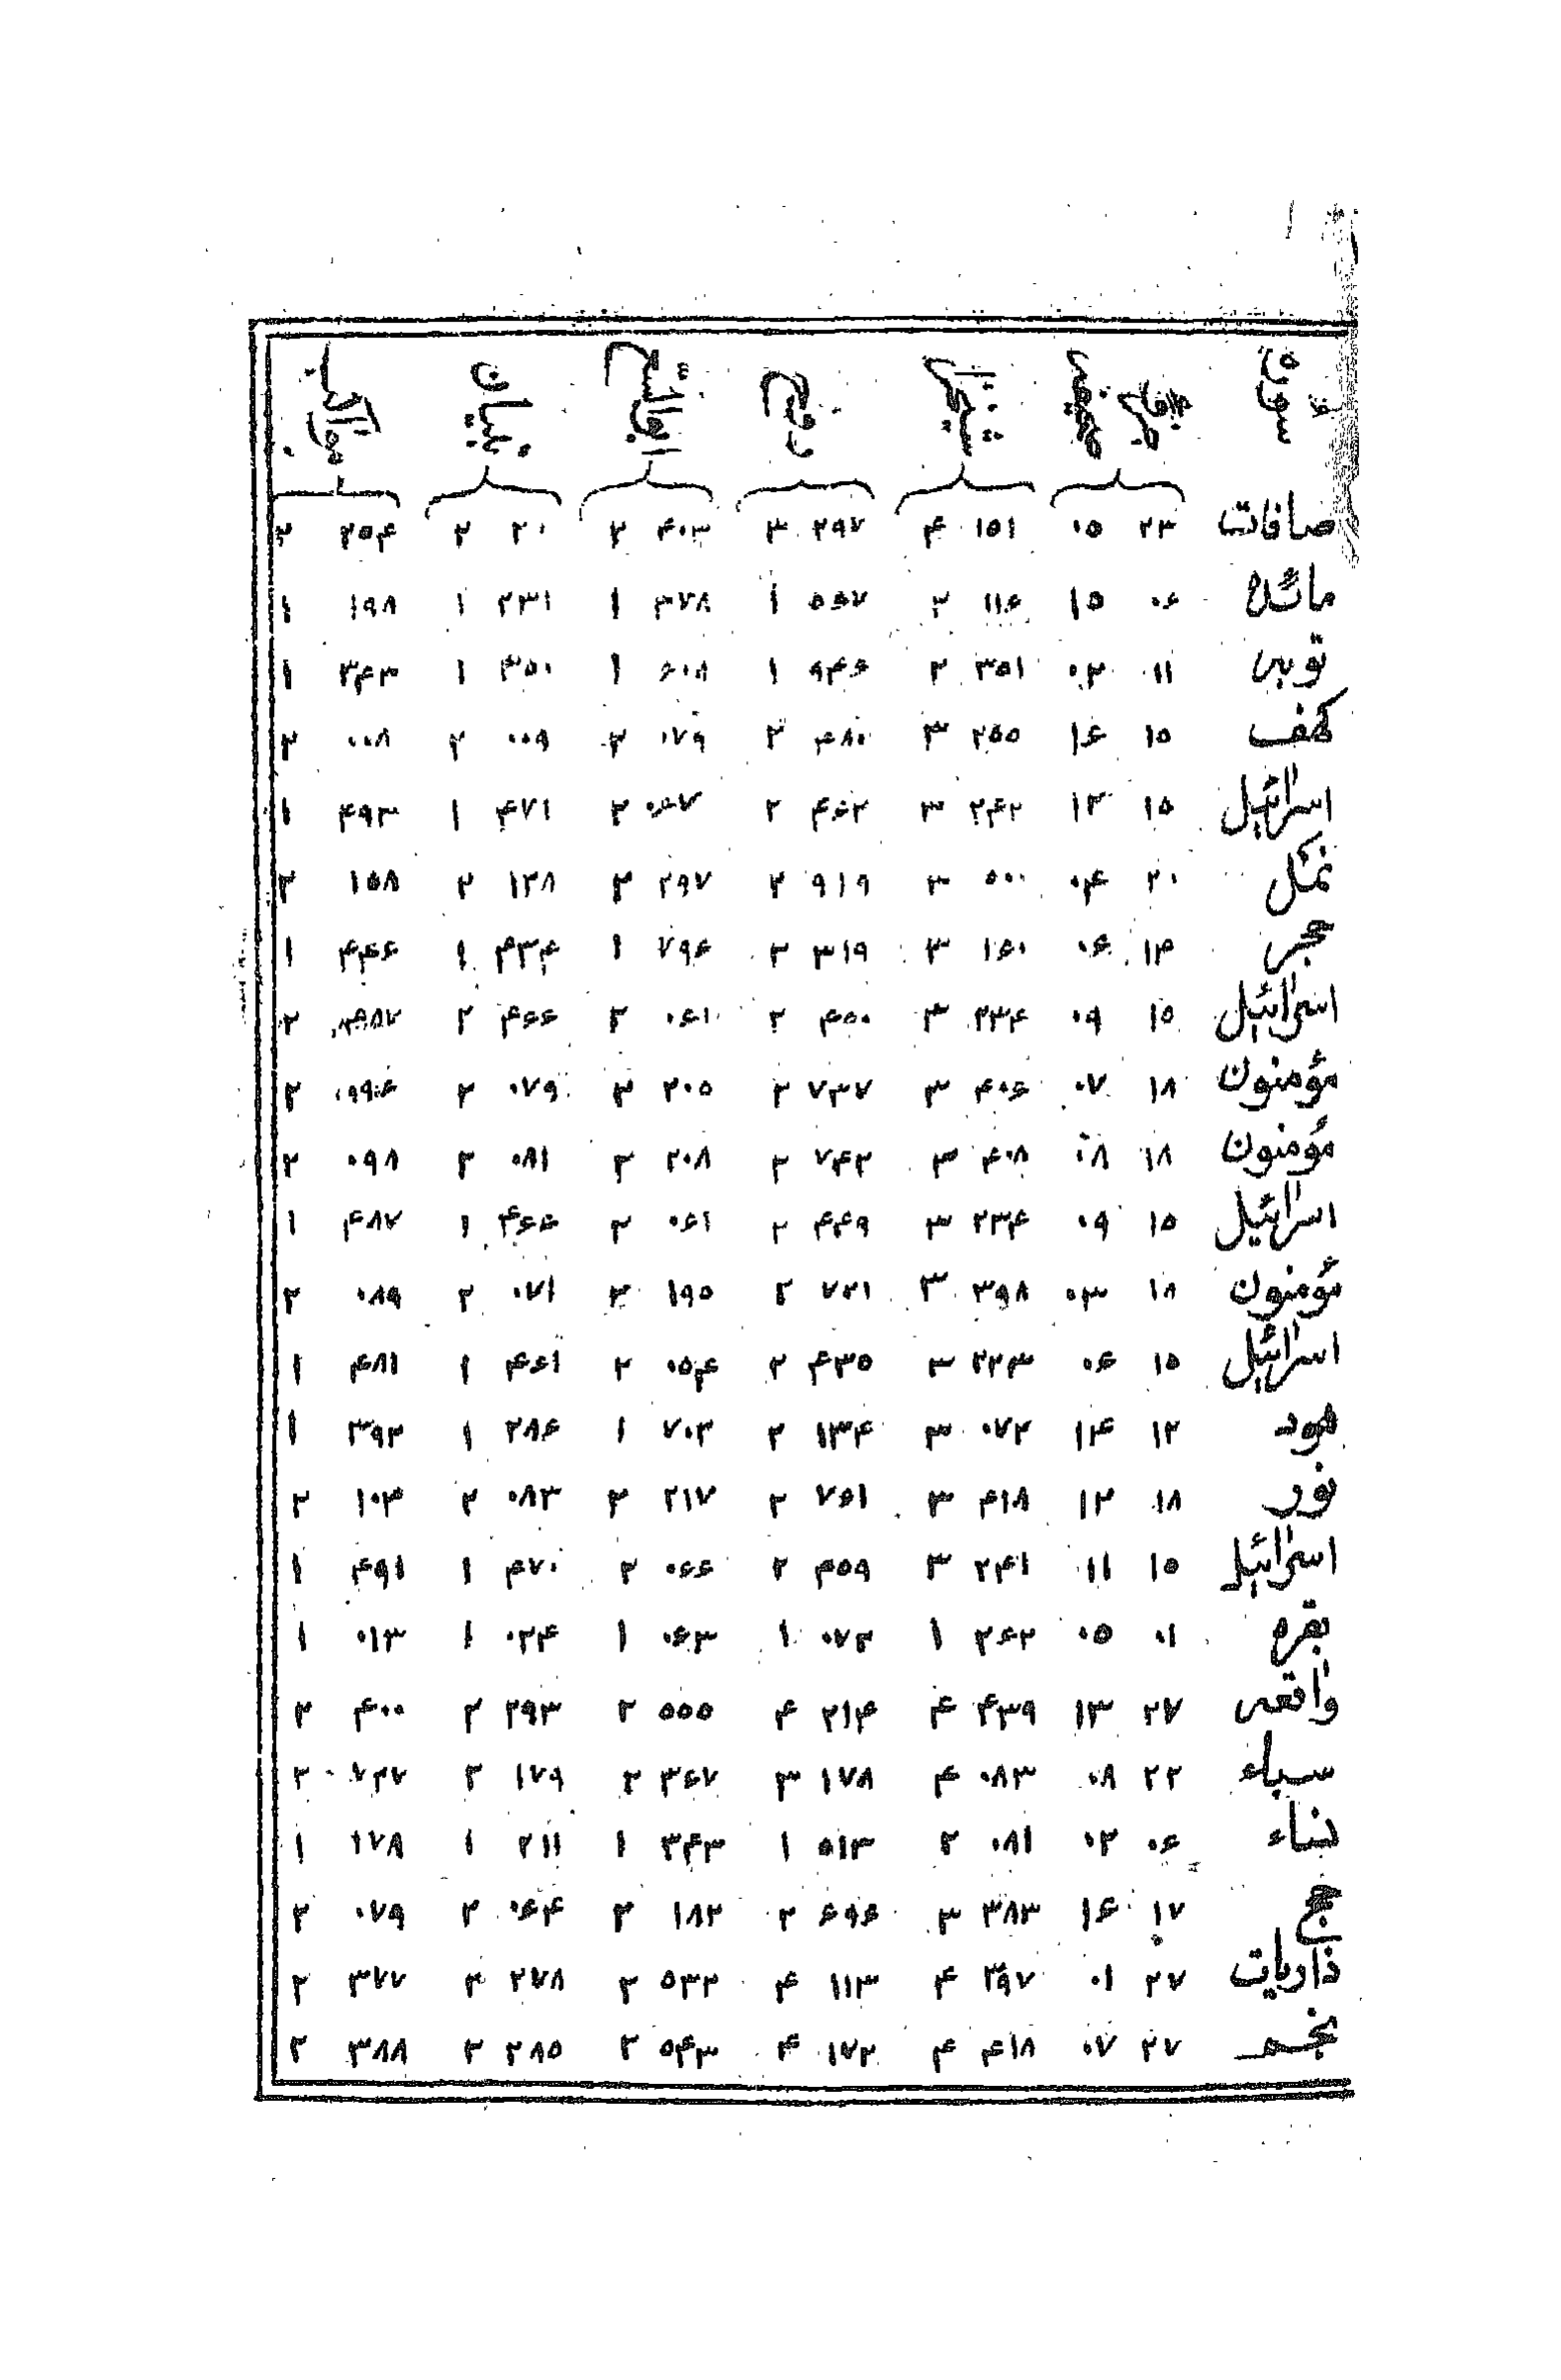 صافات ۲۳ ۰۵ ۱۵۱ ۴ ۲۹۷ ۳ ۴۰۳ ۲ ۲۰ ۲ ۲۵۴ ۲
مائده ۰۶ ۱۵ ۱۱۶ ۲ ۵۶۷ ۱ ۳۷۸ ۱ ۲۳۱ ۱ ۱۹۸ ۱
توبه ۱۱ ۰۲ ۳۵۱ ۲ ۹۴۶ ۱ ۶۰۸ ۱ ۳۵۰ ۱ ۳۴۳ ۱
کهف ۱۵ ۱۶ ۲۵۵ ۳ ۴۸۰ ۲ ۰۷۹ ۲ ۰۰۹ ۲ ۰۰۸ ۲
اسرائیل ۱۵ ۱۲ ۲۴۲ ۳ ۴۶۲ ۲ ۰۶۷ ۲ ۴۷۱ ۱ ۴۹۳ ۱
نمل ۲۰ ۰۴ ۵۰۰ ۳ ۹۱۹ ۲ ۲۹۷ ۲ ۱۲۸ ۲ ۱۵۸ ۲
حجر ۱۴ ۰۶ ۱۶۰ ۳ ۳۱۹ ۲ ۷۹۶ ۱ ۴۳۴ ۱ ۴۴۶ ۱
اسرائیل ۱۵ ۰۹ ۲۳۴ ۳ ۴۵۰ ۲ ۰۶۱ ۲ ۴۶۶ ۲ ۲
مؤمنون ۱۸ ۰۷ ۴۰۶ ۳ ۷۳۷ ۲ ۲۰۵ ۲ ۰۷۹ ۲ ۲
مؤمنون ۱۸ ۰۸ ۴۰۸ ۳ ۷۴۲ ۲ ۲۰۸ ۲ ۰۸۱ ۲ ۰۹۸ ۲
اسرائیل ۱۵ ۰۹ ۲۳۴ ۳ ۴۴۹ ۲ ۰۶۱ ۲ ۴۶۶ ۱ ۴۸۷ ۱
مؤمنون ۱۸ ۰۳ ۳۹۸ ۳ ۷۲۱ ۲ ۱۹۵ ۲ ۰۷۱ ۲ ۰۸۹ ۲
اسرائیل ۱۵ ۰۶ ۲۲۳ ۳ ۴۳۵ ۲ ۰۵۴ ۲ ۴۶۱ ۱ ۴۸۱ ۱
هود ۱۲ ۱۴ ۰۷۲ ۳ ۱۳۴ ۲ ۷۰۲ ۱ ۲۸۶ ۱ ۳۹۲ ۱
نور ۱۸ ۱۲ ۴۱۸ ۳ ۷۶۱ ۲ ۲۱۷ ۲ ۰۸۳ ۲ ۱۰۳ ۲
اسرائیل ۱۵ ۱۱ ۲۴۱ ۳ ۴۵۹ ۲ ۰۶۶ ۲ ۴۷۰ ۱ ۴۹۱ ۱
بقره ۰۱ ۰۵ ۲۶۲ ۱ ۰۷۲ ۱ ۰۶۳ ۱ ۰۲۴ ۱ ۰۱۳ ۱
واقعه ۲۷ ۱۳ ۴۳۹ ۴ ۲۱۴ ۴ ۵۵۵ ۲ ۲۹۳ ۲ ۴۰۰ ۲
سباء ۲۲ ۰۸ ۰۸۳ ۴ ۱۷۸ ۳ ۳۶۷ ۲ ۱۷۹ ۲ ۲
نساء ۰۶ ۰۲ ۰۸۱ ۲ ۵۱۳ ۱ ۳۴۳ ۱ ۲۱۱ ۱ ۱۷۸ ۱
حج ۱۷ ۱۶ ۳۸۳ ۳ ۶۹۶ ۲ ۱۸۲ ۲ ۰۶۴ ۲ ۰۷۹ ۲
ذاریات ۲۷ ۰۱ ۳۹۷ ۴ ۱۱۳ ۴ ۵۳۲ ۲ ۲۷۸ ۲ ۳۷۷ ۲
نجم ۲۷ ۰۷ ۴۱۸ ۴ ۱۷۲ ۴ ۵۴۳ ۲ ۲۸۵ ۲ ۳۸۸ ۲